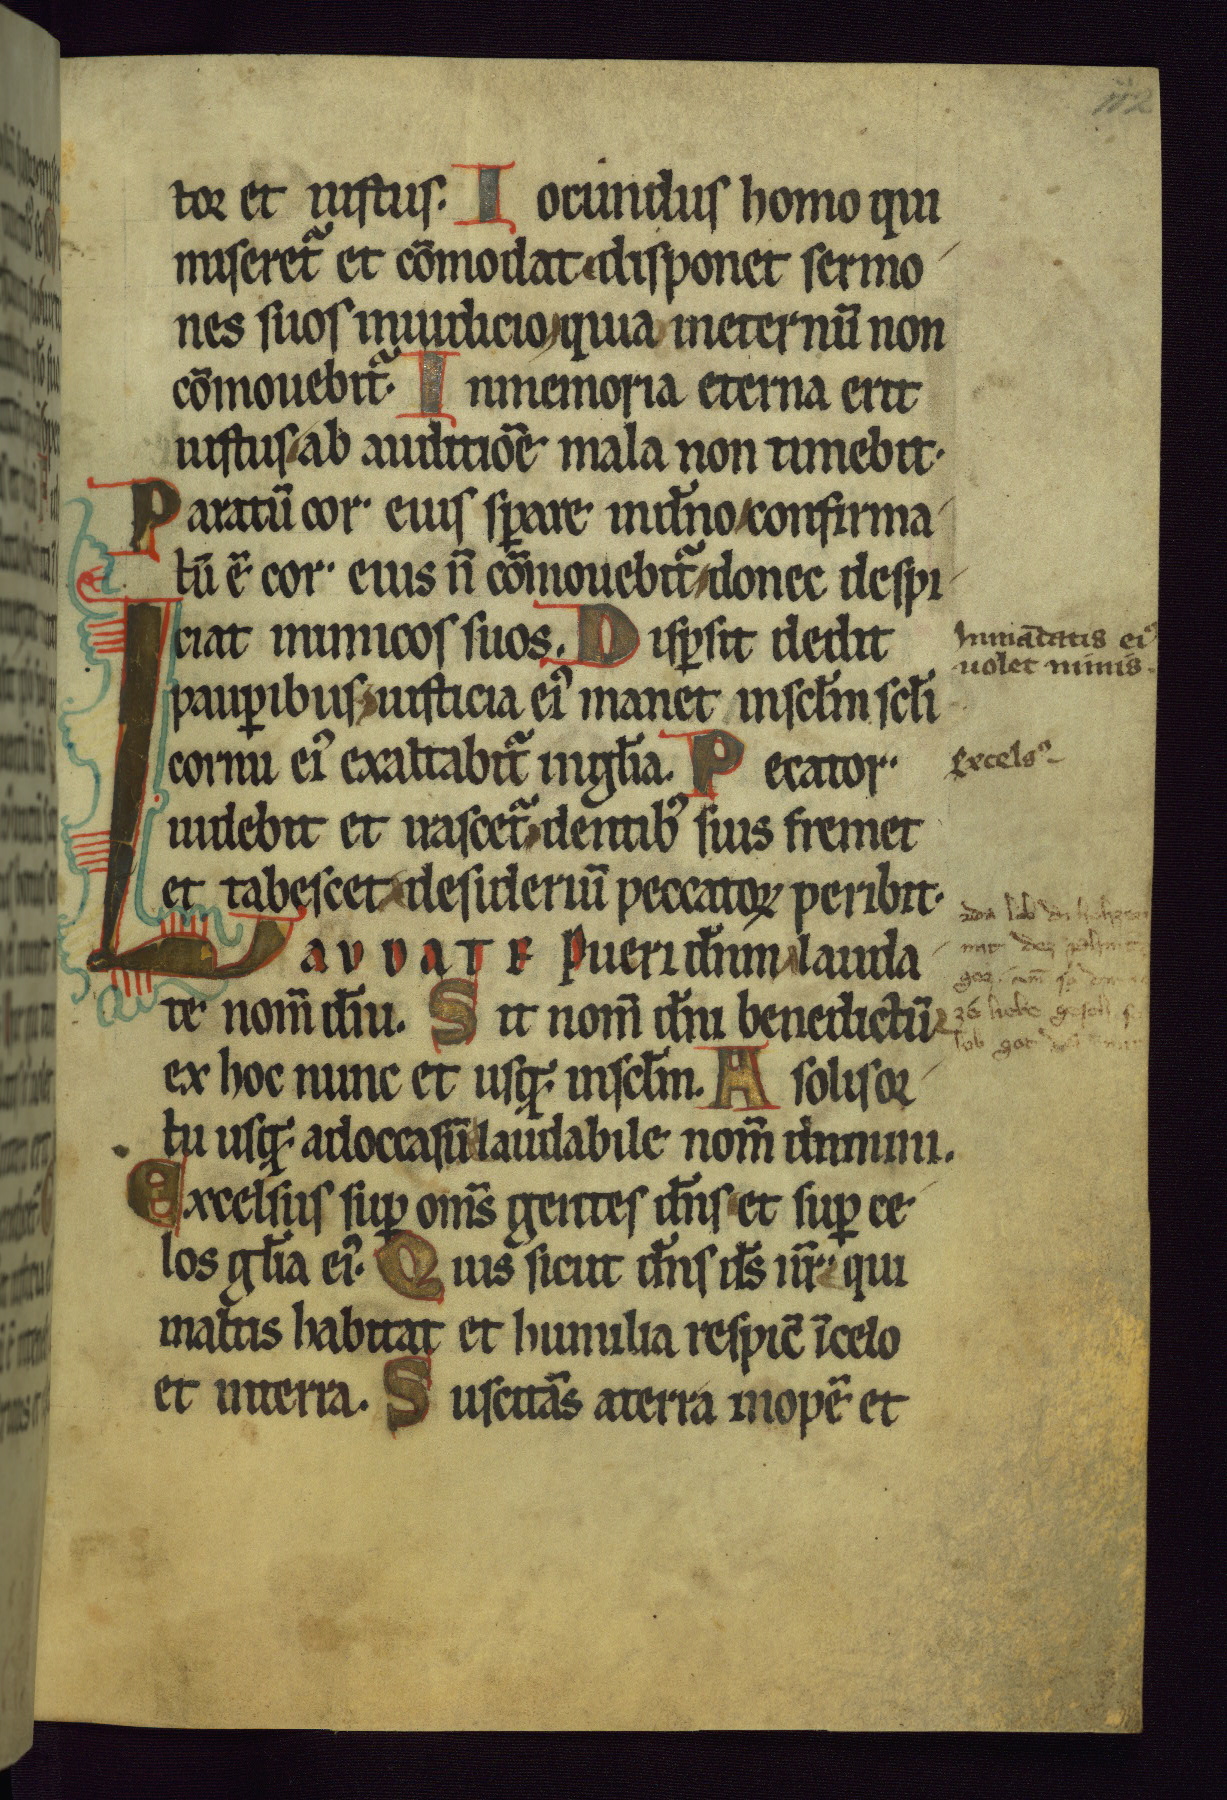 tor et iustus. Iocundus homo qui
miseret᷑ et cōmodat disponet sermo
nes suos iniudicio quia ineternū non
cōmouebit᷑. Inmemoria eterna erit
iustus ab auditiōe mala non timebit.
Paratū cor eius sꝑare indn̄o confirma
tū ē cor eius n̄ cōmouebit᷑ donec despi
ciat inimicos suos. Disꝑsit dedit
pauꝑibus iusticia ei᷒ manet insclm̄ scli̅
cornu ei᷒ exaltabit᷑ inglīa. Pecator
uidebit et irascet᷑ dentib᷒ suis fremet
et tabescet desideriū peccatoꝝ peribit.
LAUDATE Pueri dn̄m lauda
te nom̄ dn̄i. Sit nom̄ dn̄i benedictū
ex hoc nunc et usq; insclm̄. A solis or
tu usq; adoccasū laudabile nom̄ dn̄inini.
Excelsus suꝑ om̄s gentes dn̄s et suꝑ ce
los glīa ei᷒. Quis sicut dn̄s ds̄ nr̄ qui
inaltis habitat et humilia respic̄ īcelo
et interra. Suscitās aterra inopē et
Inmādatis ei᷒
uolet nimis.
Excels᷒